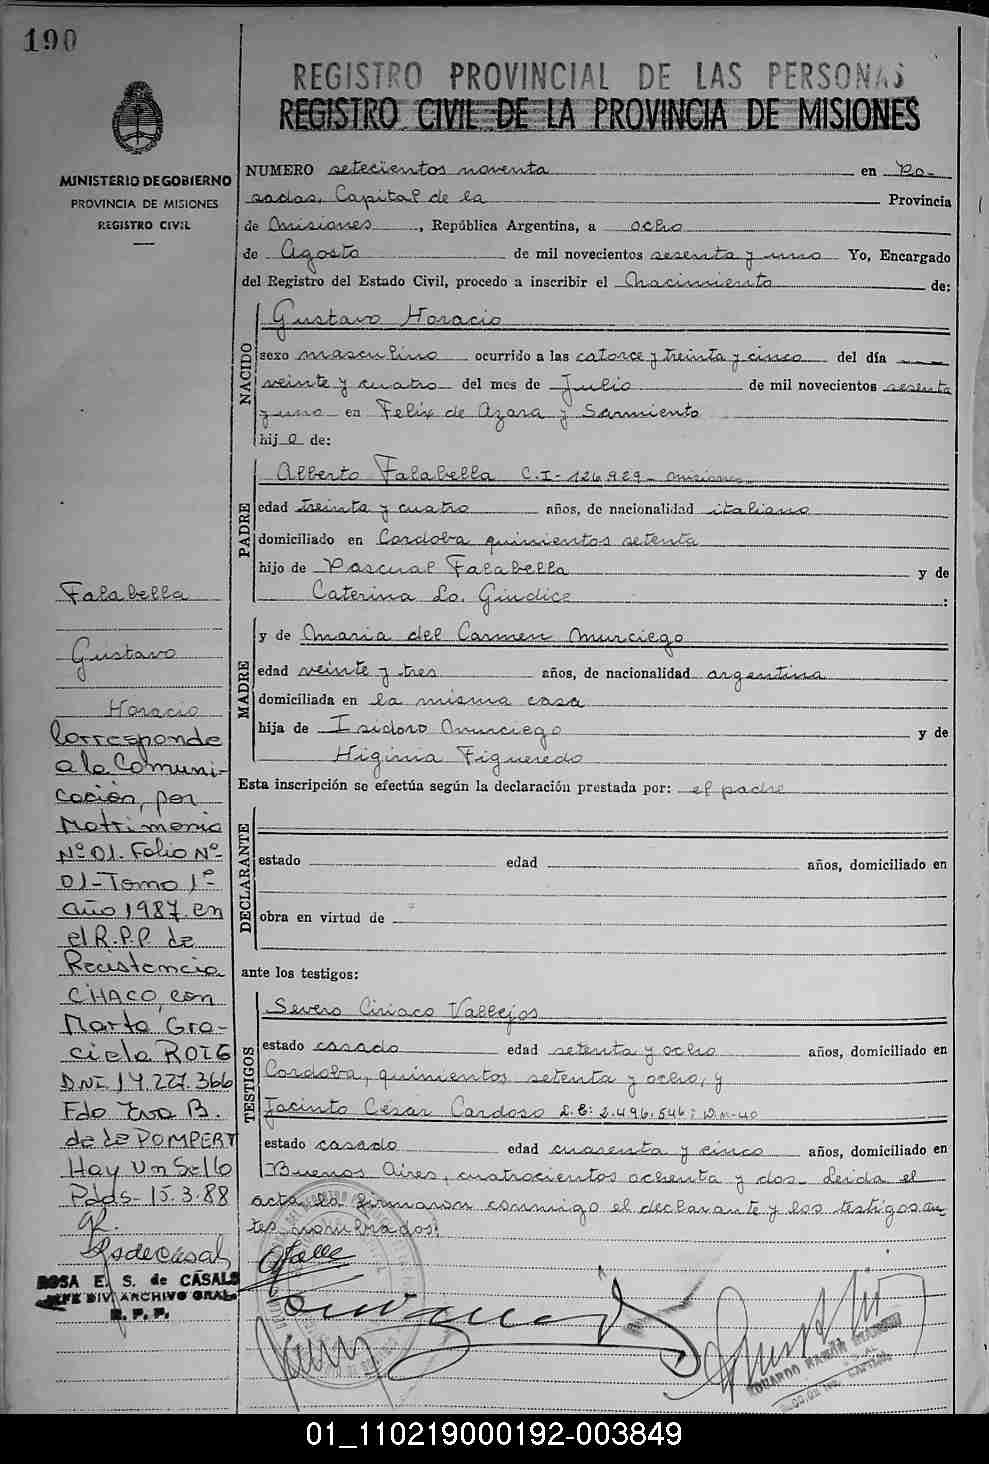 190
REGISTRO PROVINCIAL DE LAS PERSONAS
REGISTRO CIVIL DE LA PROVINCIA DE MISIONES
MINISTERIO DE GOBIERNO
PROVINCIA DE MISIONES
REGISTRO CIVIL
NUMERO setecientos noventa en Po-
sadas, Capital de la Provincia
de Misiones, República Argentina, a ocho
de Agosto de mil novecientos sesenta y uno Yo, Encargado
del Registro del Estado Civil, procedo a inscribir el Nacimiento de:
NACIDO
Gustavo Horacio
sexo masculino ocurrido a las catorce y treinta y cinco del día
veinte y cuatro del mes de Julio de mil novecientos sesenta
y uno en Felix de Azara y Sarmiento
hijo de:
PADRE
Alberto Falabella C.I-126.929- Misiones
edad treinta y cuatro años, de nacionalidad italiano
domiciliado en Cordoba quinientos setenta
hijo de Pascual Falabella y de
Caterina Lo. Giudice :
MADRE
y de Maria del Carmen Murciego
edad veinte y tres años, de nacionalidad argentina
domiciliada en la misma casa
hija de Isidoro Murciego y de
Higinia Figueredo
Esta inscripción se efectúa según la declaración prestada por: el padre
DECLARANTE
estado edad años, domiciliado en
obra en virtud de
ante los testigos:
TESTIGOS
Severo Ciriaco Vallejos
estado casado edad setenta y ocho años, domiciliado en
Cordoba, quinientos setenta y ocho, y
Jacinto César Cardoso L.E: 2.496.546; D.M-40
estado casado edad cuarenta y cinco años, domiciliado en
Buenos Aires, cuatrocientos ochenta y dos- Leida el
acta la firmaron conmigo el declarante y los testigos an-
tes nombrados.
Falabella
Gustavo
Horacio
Corresponde
a la Comuni-
cación, por
Matrimonio
Nº 01. Folio Nº
01-Tomo 1º
año 1987 en
el R.P.P. de
Resistencia
CHACO, con
Marta Gra-
ciela ROIG
DNI. 14.227.366
Fdo Eva B.
de de POMPERT
Hay un Sello
Pdas-15.3.88
RSdeCasals
ROSA E. S. de CÁSALS
JEFE DIV. ARCHIVO GRAL.
R. P. P.
EDUARDO RAMON
CAPITAL
01_110219000192-003849